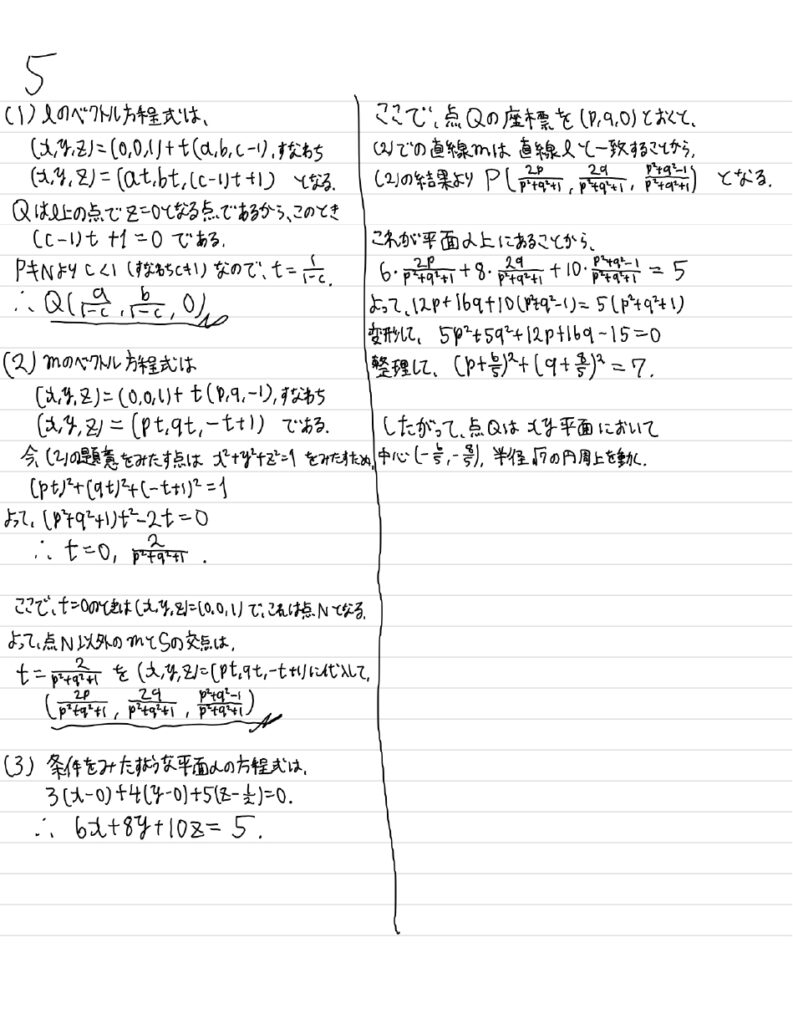 5
(1) lのベクトル方程式は、
(x,y,z)=(0,0,1)+t(a,b,c-1), すなわち
(x,y,z)=(at,bt,(c-1)t+1) となる.
Qはl上の点でz=0となる点であるから、このとき
(c-1)t+1=0 である.
P≠Nより c<1 (すなわちc≠1) なので、t=1/(1-c).
∴ Q(a/(1-c), b/(1-c), 0)
(2) mのベクトル方程式は
(x,y,z)=(0,0,1)+t(p,q,-1), すなわち
(x,y,z)=(pt,qt,-t+1) である.
今、(2)の題意をみたす点は x²+y²+z²=1 をみたすため,
(pt)²+(qt)²+(-t+1)²=1
よって、(p²+q²+1)t²-2t=0
∴ t=0, 2/(p²+q²+1).
ここで、t=0のときは(x,y,z)=(0,0,1)で、これは点Nとなる.
よって、点N以外のmとSの交点は、
t=2/(p²+q²+1) を (x,y,z)=(pt,qt,-t+1)に代入して、
(2p/(p²+q²+1), 2q/(p²+q²+1), (p²+q²-1)/(p²+q²+1))
(3) 条件をみたすような平面αの方程式は、
3(x-0)+4(y-0)+5(z-1/2)=0.
∴ 6x+8y+10z=5.
ここで、点Qの座標を(p,q,0)とおくと、
(2)での直線mは直線lと一致することから、
(2)の結果より P(2p/(p²+q²+1), 2q/(p²+q²+1), (p²+q²-1)/(p²+q²+1)) となる.
これが平面α上にあることから、
6・2p/(p²+q²+1)+8・2q/(p²+q²+1)+10・(p²+q²-1)/(p²+q²+1)=5
よって、12p+16q+10(p²+q²-1)=5(p²+q²+1)
変形して、5p²+5q²+12p+16q-15=0
整理して、(p+6/5)²+(q+8/5)²=7.
したがって、点Qはxy平面において
中心(-6/5,-8/5), 半径√7の円周上を動く.